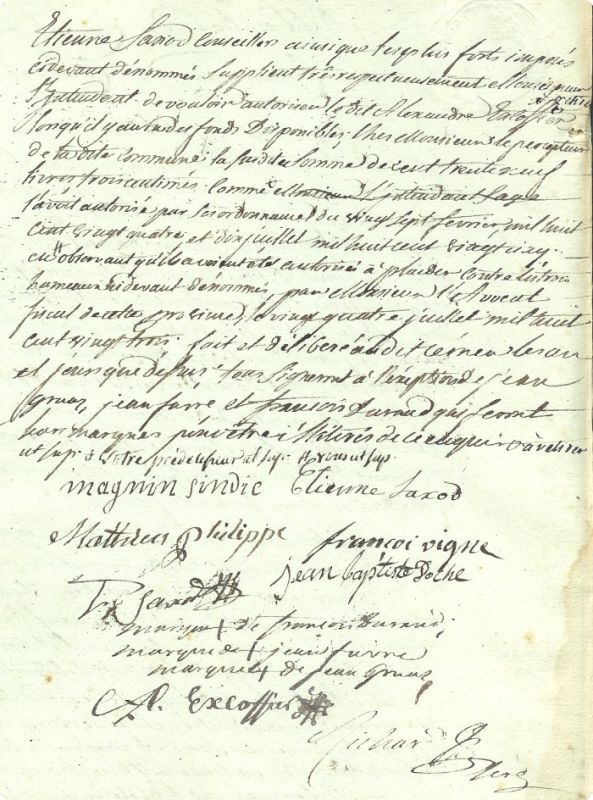 Etienne Saxod Conseillers ainsi que les plus forts imposés
cidevant dénommés supplient très respectueusement Monsieur
L'Intendant de vouloir autoriser le dit Alexandre Excoffier
lorsqu'il y aura des fonds disponibles chez Monsieur le percepteur
de la dite commune la susdite somme de cent trente neuf
livres trois centimes comme Monsieur L'Intendant
l'avoit autorisé par son ordonnance du vingt sept février mil huit
cent vingt quatre et don juillet mil huit cent vingt
en observant qu'il a autorisé à plaider contre les trois
hameaux cidevant denommés, par Monsieur l'Avocat
fiscal de cette province, le vingt quatre juillet mil huit
cent vingt trois. fait et déliberé audit les an
et jour que dessus tous signeront à l'exeption de jean
gruaz, jean favre et francois durand qui feront
leur marques pour être illiterés de ce enquis
ut sup.
magnin sindic Etienne Saxod
Mathieu philippe françoi vigne
jean baptiste Doche
Fx Saxod
marque + de francois durand
marque de + jean favre
marque + de jean gruaz
Al. Excoffier
Richard